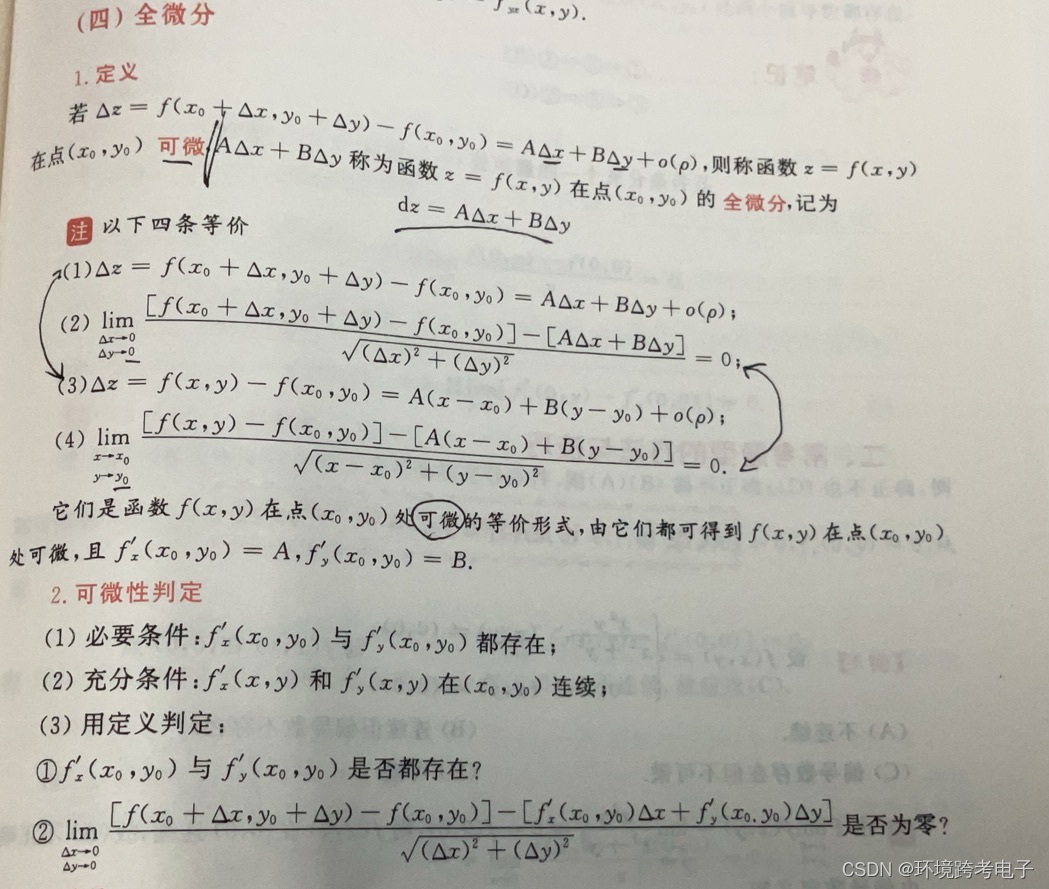 (四) 全微分
f″yx(x,y).
1. 定义
若 Δz = f(x₀ + Δx, y₀ + Δy) − f(x₀, y₀) = AΔx + BΔy + o(ρ), 则称函数 z = f(x,y)
在点(x₀, y₀) 可微, AΔx + BΔy 称为函数 z = f(x,y) 在点(x₀, y₀) 的 全微分, 记为
dz = AΔx + BΔy
注 以下四条等价
(1) Δz = f(x₀ + Δx, y₀ + Δy) − f(x₀, y₀) = AΔx + BΔy + o(ρ);
(2) lim_{Δx→0, Δy→0} {[f(x₀ + Δx, y₀ + Δy) − f(x₀, y₀)] − [AΔx + BΔy]} / √((Δx)² + (Δy)²) = 0;
(3) Δz = f(x,y) − f(x₀, y₀) = A(x − x₀) + B(y − y₀) + o(ρ);
(4) lim_{x→x₀, y→y₀} {[f(x,y) − f(x₀, y₀)] − [A(x − x₀) + B(y − y₀)]} / √((x − x₀)² + (y − y₀)²) = 0.
它们是函数 f(x,y) 在点(x₀, y₀) 处可微的等价形式, 由它们都可得到 f(x,y) 在点(x₀, y₀)
处可微, 且 f′x(x₀, y₀) = A, f′y(x₀, y₀) = B.
2. 可微性判定
(1) 必要条件: f′x(x₀, y₀) 与 f′y(x₀, y₀) 都存在;
(2) 充分条件: f′x(x,y) 和 f′y(x,y) 在(x₀, y₀) 连续;
(3) 用定义判定:
① f′x(x₀, y₀) 与 f′y(x₀, y₀) 是否都存在?
② lim_{Δx→0, Δy→0} {[f(x₀ + Δx, y₀ + Δy) − f(x₀, y₀)] − [f′x(x₀, y₀)Δx + f′y(x₀. y₀)Δy]} / √((Δx)² + (Δy)²) 是否为零?
CSDN @环境跨考电子